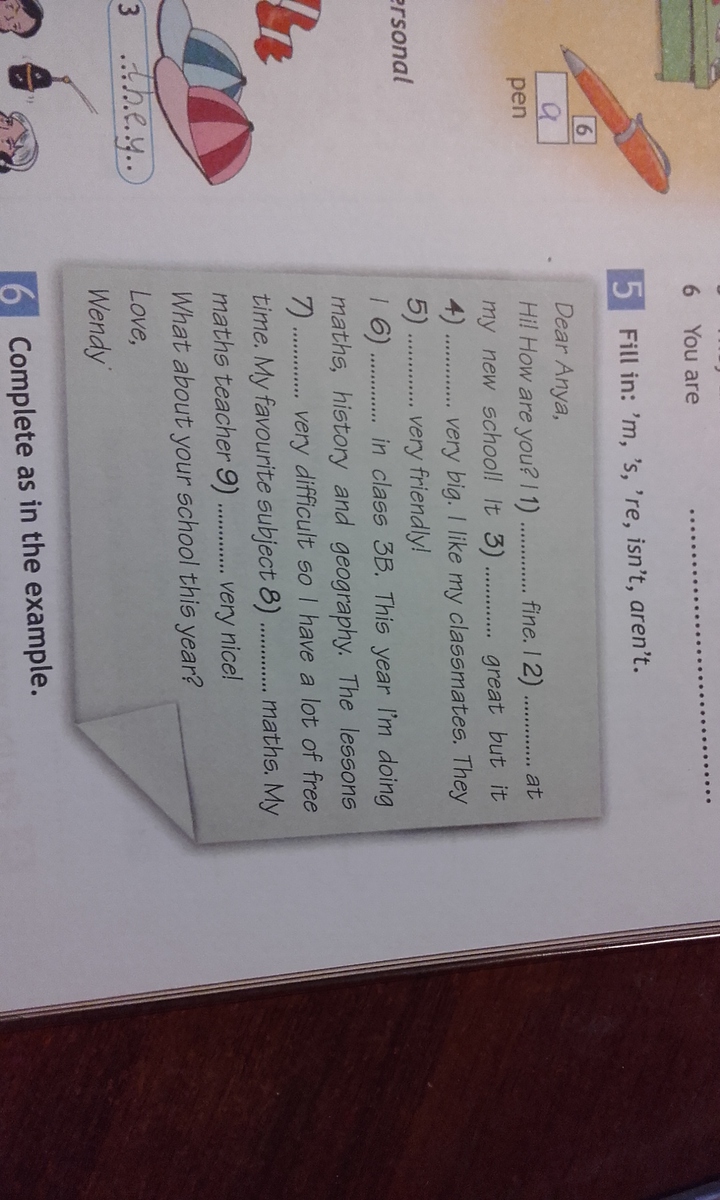 6 You are ........................
ersonal
6
a
pen
3 they
5 Fill in: 'm, 's, 're, isn't, aren't.
Dear Anya,
Hi! How are you? I 1) ............ fine. I 2) ............ at
my new school! It 3) ............ great but it
4) ............ very big. I like my classmates. They
5) ............ very friendly!
I 6) ............ in class 3B. This year I'm doing
maths, history and geography. The lessons
7) ............ very difficult so I have a lot of free
time. My favourite subject 8) ............ maths. My
maths teacher 9) ............ very nice!
What about your school this year?
Love,
Wendy
6 Complete as in the example.